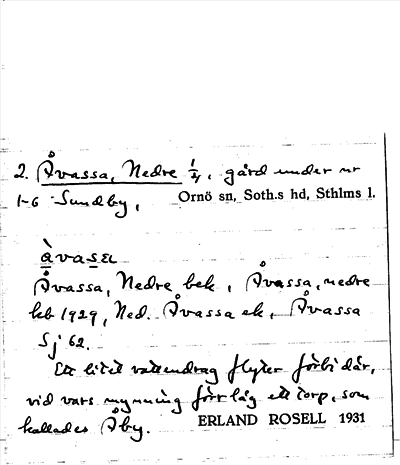 2. Åvassa, Nedre 1/4, gård under nr
1-6 Sundby, Ornö sn, Soth.s hd, Sthlms l.
àvasa
Åvassa, Nedre bek, Åvassa, nedre
kb 1929, Ned. Åvassa ek, Åvassa
Sj 62.
Ett litet vattendrag flyter förbi där,
vid vars mynning förr låg ett torp, som
kallades Åby. ERLAND ROSELL 1931